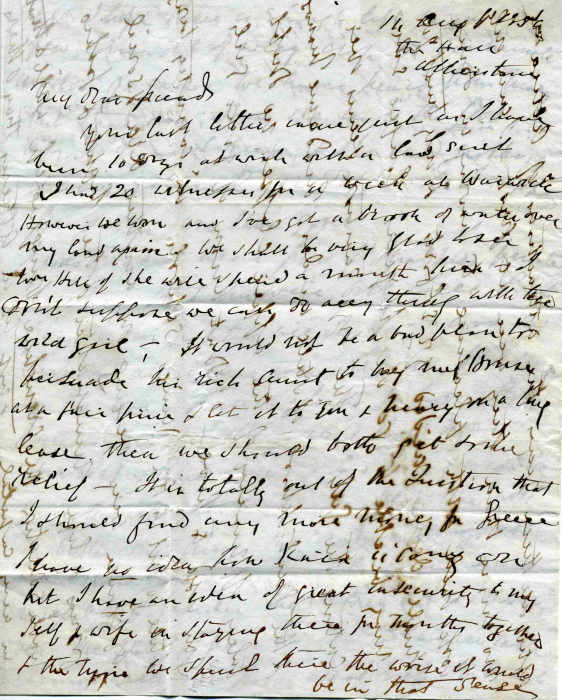 14 Aug
The Hall
Atherstone
My dear friend
Your last letter came just as I had
been 10 days at work with a law suit
I had 20 witnesses for a week at Warwick
However we won and I've got a brook of water over
my land again & we shall be very glad to see
if she will spend a month here & I
don't suppose we can do any thing with the
wild girl – It would not be a bad plan to
persuade his rich Aunt to buy my House
at a fair price & let it to you & on a long
lease then we should both get some
relief – It is totally out of the Question that
I should find any more money for Greece
I have no idea how is going on
but I have an idea of great insecurity to my
self & wife in staying there for months together
& the we spent there the worse it would
be in that